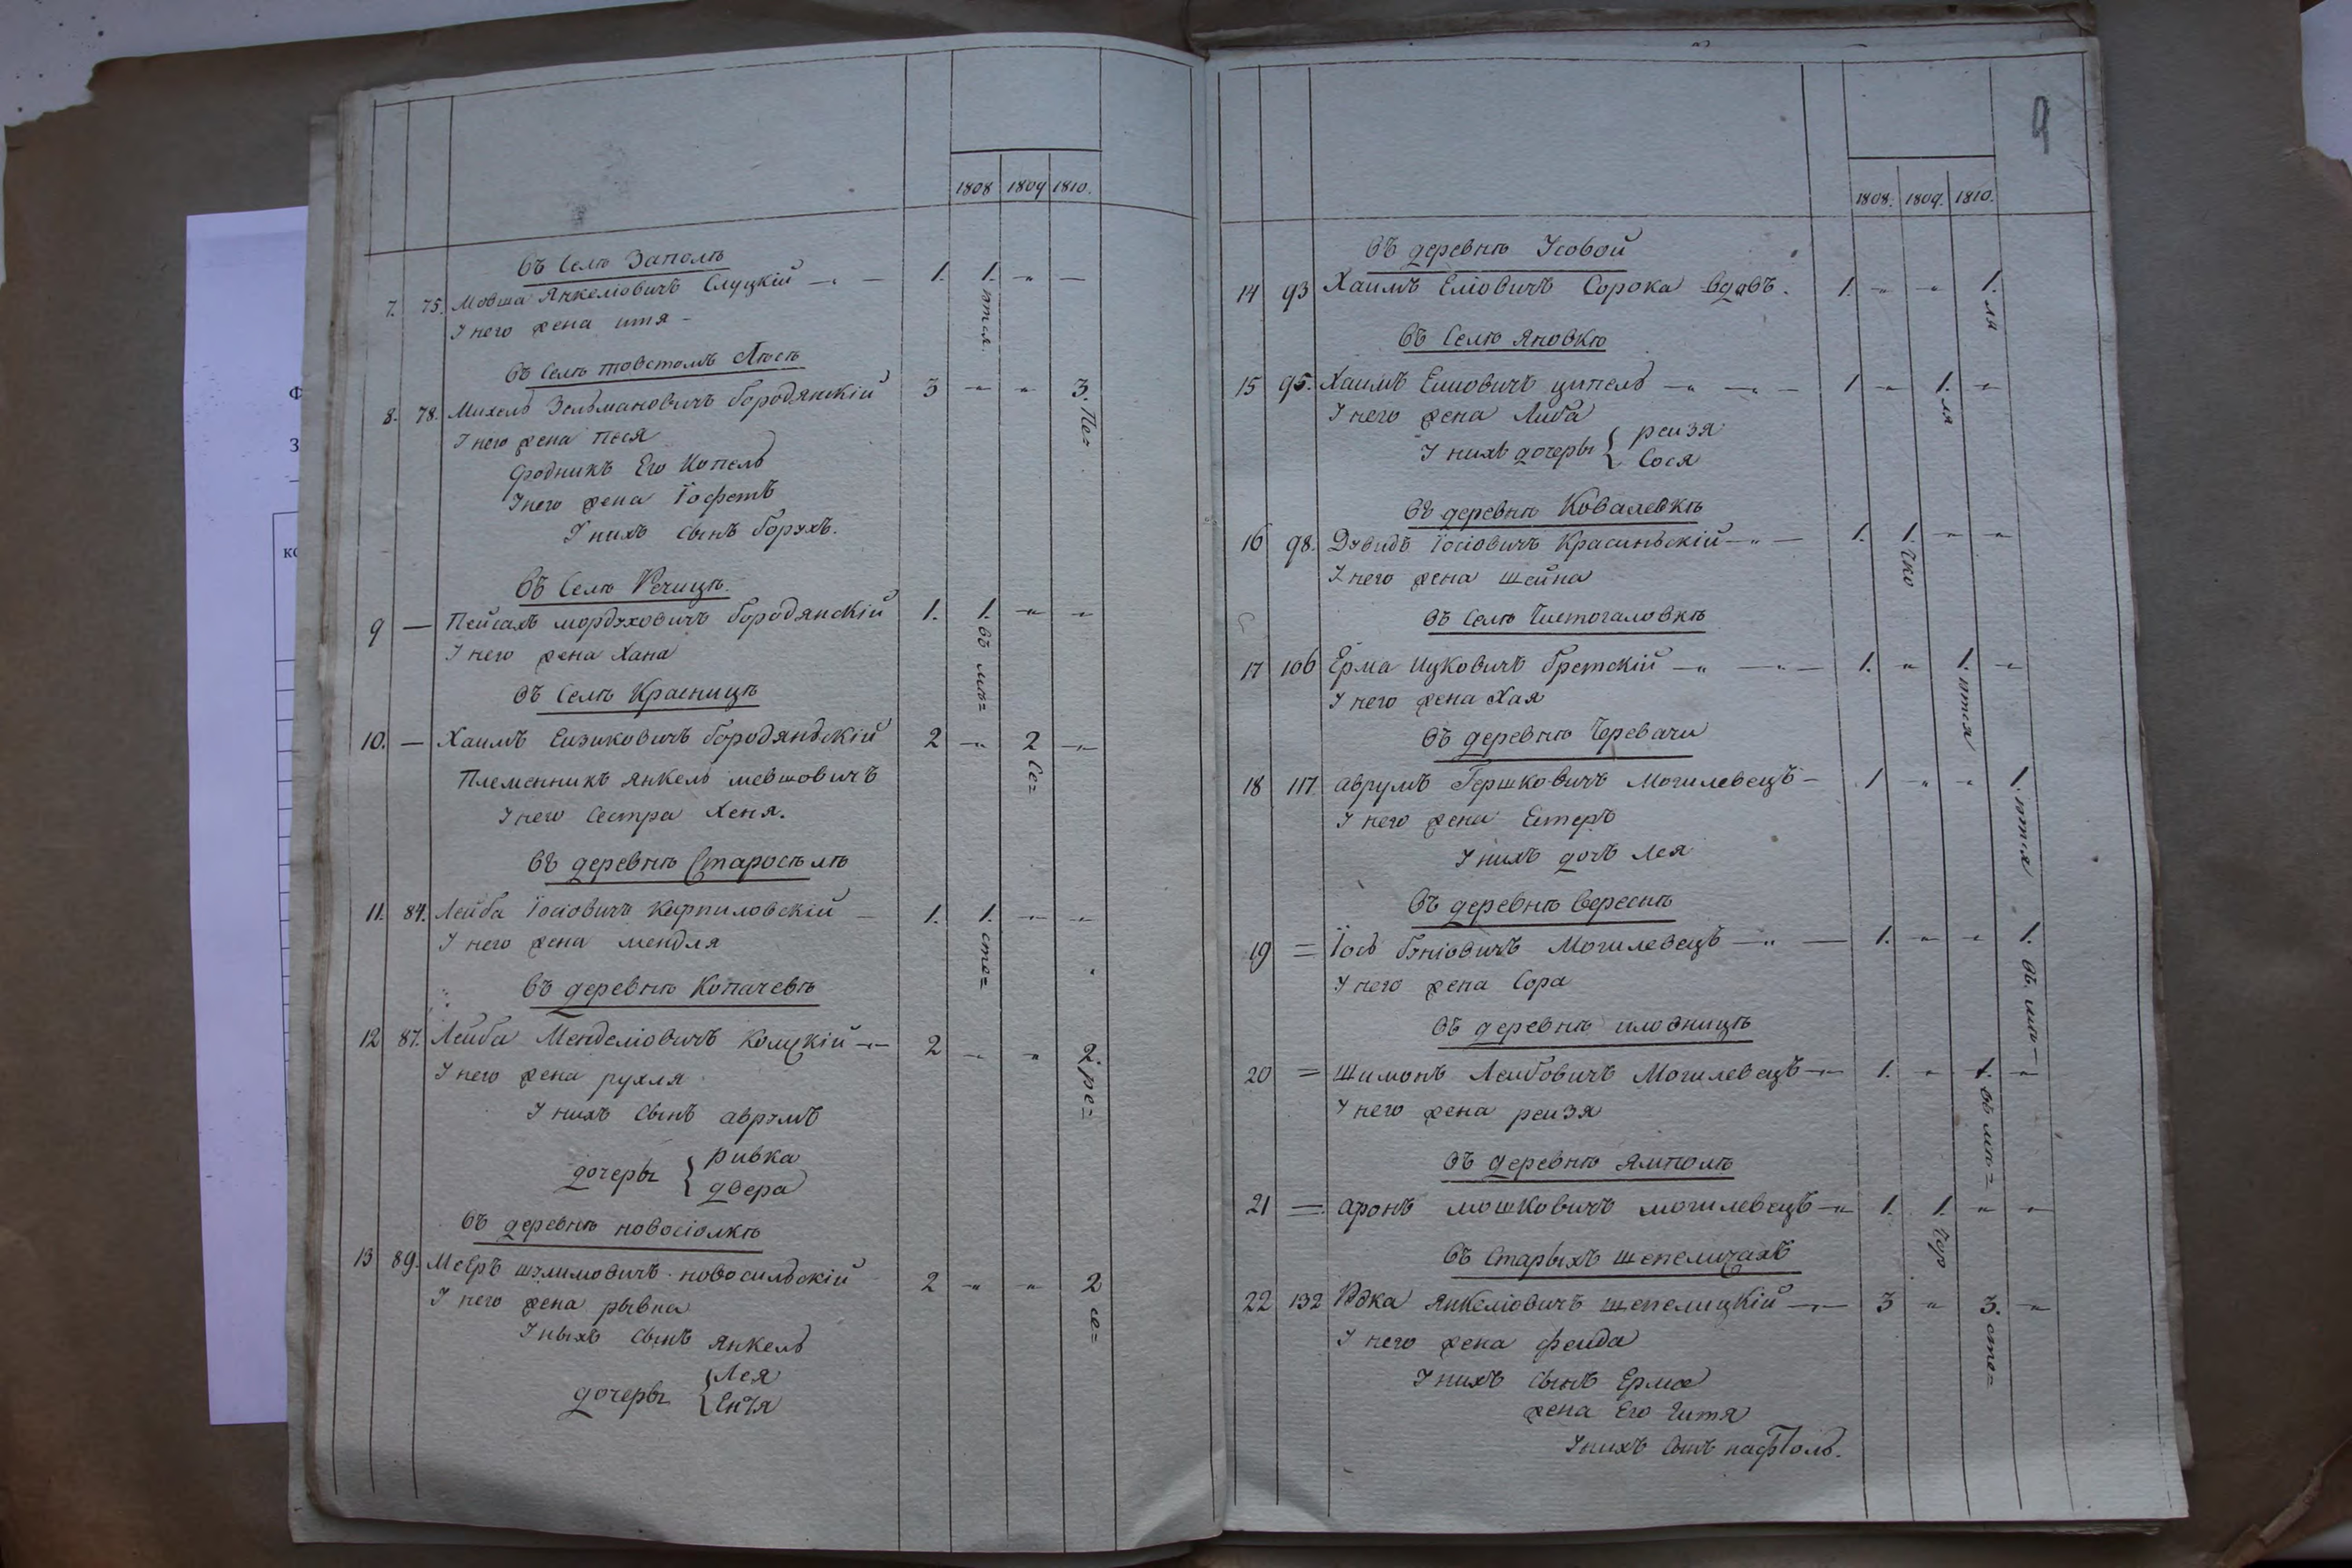 1808 1809 1810.
Въ Селѣ Заполѣ
7. 75. Мовша Янкеліовичъ Слуцкій 1. 1.
У него жена итя
Въ Селѣ товстомъ Лѣсѣ
8. 78. Михель Зельмановичъ бородянскій 3 3. Пе=
У него жена песя
Его Копель
У него жена Їофетъ
У нихъ сынъ борухъ.
Въ Селѣ Речицѣ.
9 — Пейсахъ мордуховичъ бородянскій 1. 1. въ мѣ=
У него жена Хана
Въ Селѣ Красницѣ
10. — Хаимъ Еизиковичъ бородяньскій 2 2 Се=
Племенникъ янкель мевшовичъ
У него Сестра Хеня.
Въ деревнѣ Старосѣлѣ
11. 84. Лейба Їосіовичъ Карпиловскій 1. 1. сте=
У него жена мендля
Въ деревнѣ Копачевѣ
12 87. Лейба Менделіовичъ Колцкій 2 2. ре=
У него жена рухля
У нихъ сынъ аврумъ
дочеры { ривка
двера
Въ деревнѣ новосіолкѣ
13 89. Меєръ шулимовичъ новосильскій 2 2 се=
У него жена рывка
У ныхъ сынъ янкель
дочеры { Лея
Ентя
9
1808. 1809. 1810.
Въ деревнѣ Усовой
14 93 Хаимъ Еліовичъ Сорока вдовъ. 1. 1. ля
Въ Селѣ яновкѣ
15 95. Хаимъ Ешиовичъ ципель 1 1. ля
У него жена Либа
У нихъ дочеры { реизя
Сося
Въ деревнѣ Ковалевкѣ
16 98. Дувидъ Їосіовичъ Красиньскій 1. 1. Чко
У него жена шейна
Въ Селѣ Чистогаловкѣ
17 106 Ерма ицковичъ Гретскій 1. 1. итея
У него жена Хая
Въ деревнѣ Черевачи
18 117. аврумъ Гершковичъ Могилевецъ 1 1.
У него жена Естеръ
У нихъ дочъ лея
Въ деревнѣ Вереснѣ
19 = Їось бэніовичъ Могилевецъ 1. 1. въ мѣ
У него жена Сора
Въ деревнѣ ильвницѣ
20 = Шимонъ Леибовичъ Могилевецъ 1. 1. въ мѣ=
У него жена реизя
Въ деревнѣ ямполѣ
21 = аронъ мошковичъ могилевецъ 1. 1. Чер
Въ Старыхъ шепеличахъ
22 132 Юдка янкеліовичъ шепелицкій 3 3. сте=
У него жена феида
У нихъ сынъ Ерма
жена Его Гитя
У нихъ сынъ нафтоль.